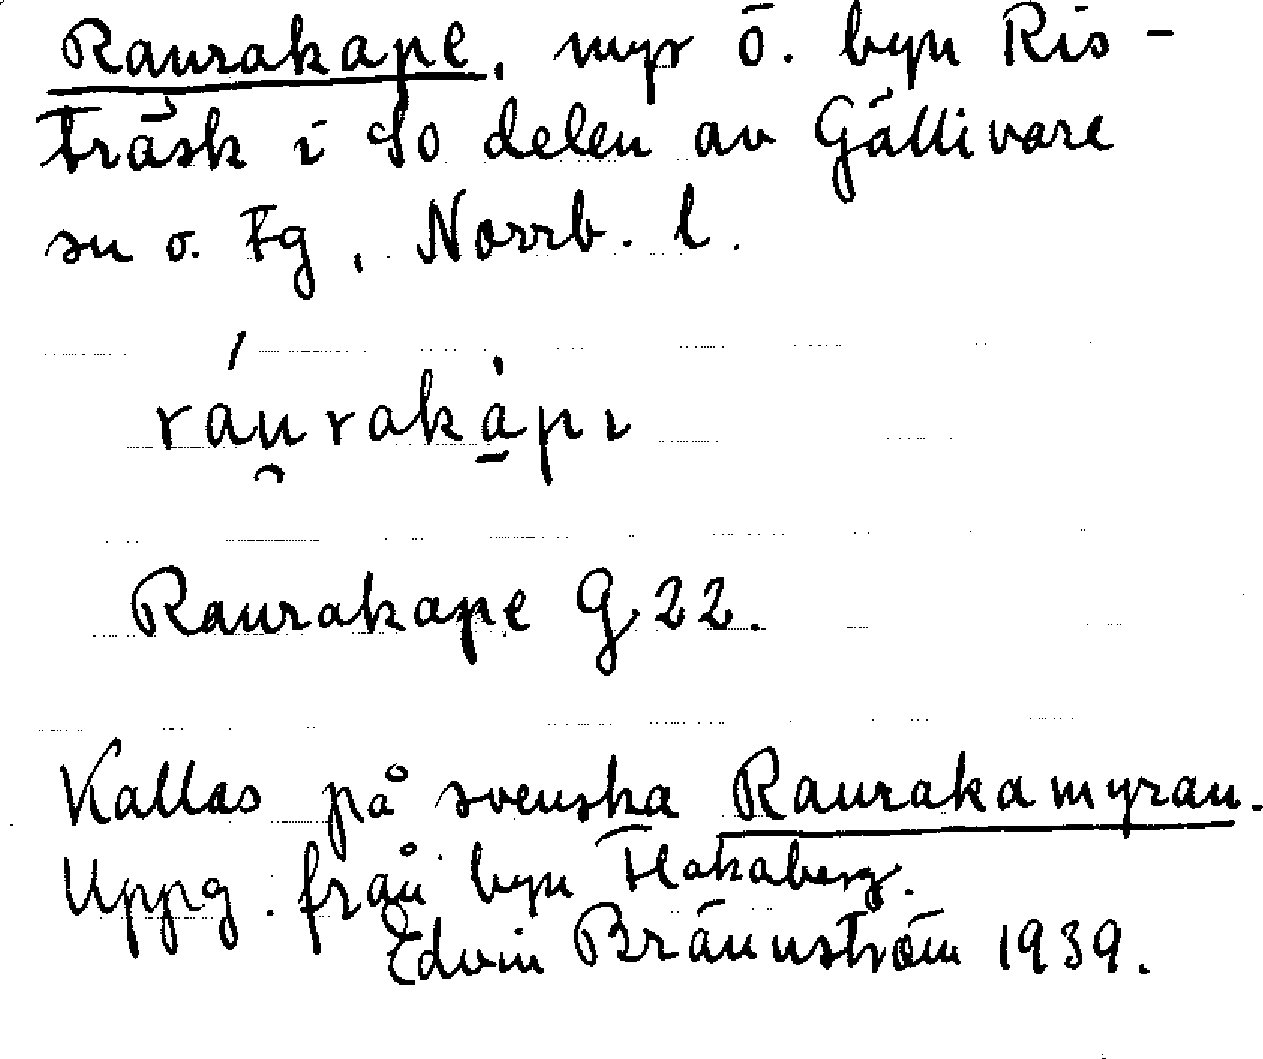 Raurakape, myr ö. byn Ris-
träsk i So delen av Gällivare
sn o. Tg, Norrb. l.
ráu̯rakàpı
Raurakape G 22.
Kallas på svenska Raurakamyran.
Uppg. från byn Hakaberg.
Edvin Brännström 1939.